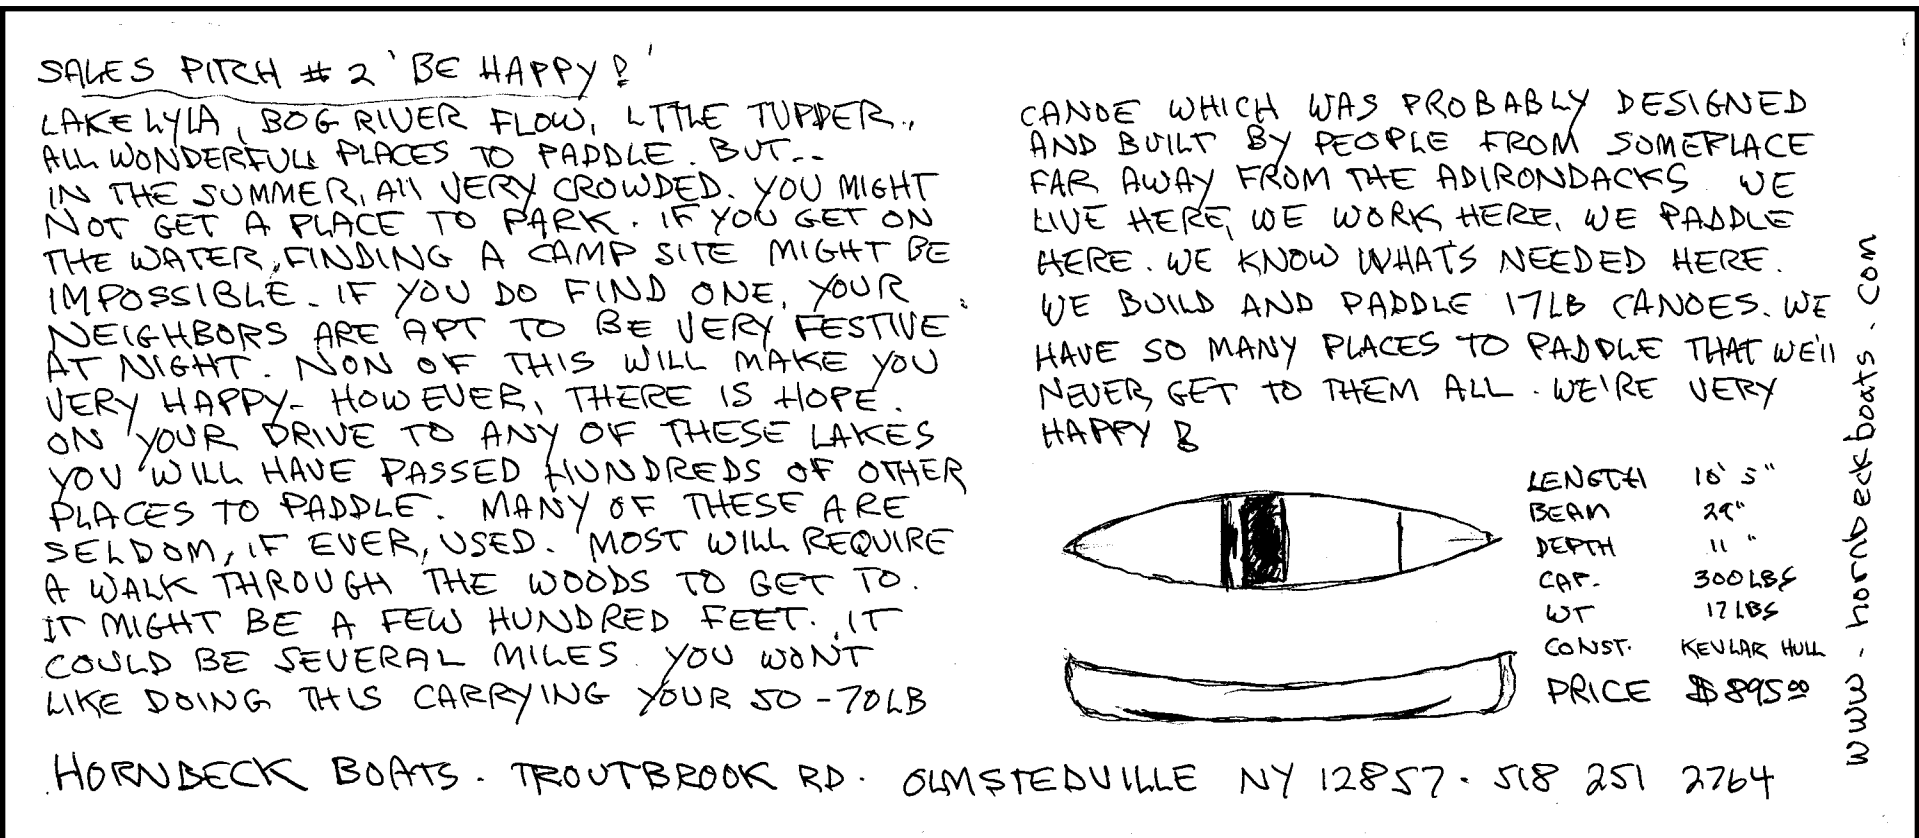 SALES PITCH # 2 'BE HAPPY!'
LAKE LYLA, BOG RIVER FLOW, LITTLE TUPPER.,
ALL WONDERFULL PLACES TO PADDLE. BUT..
IN THE SUMMER, All VERY CROWDED. YOU MIGHT
NOT GET A PLACE TO PARK. IF YOU GET ON
THE WATER, FINDING A CAMP SITE MIGHT BE
IMPOSSIBLE. IF YOU DO FIND ONE, YOUR
NEIGHBORS ARE APT TO BE VERY FESTIVE
AT NIGHT. NON OF THIS WILL MAKE YOU
VERY HAPPY- HOWEVER, THERE IS HOPE.
ON YOUR DRIVE TO ANY OF THESE LAKES
YOU WILL HAVE PASSED HUNDREDS OF OTHER
PLACES TO PADDLE. MANY OF THESE ARE
SELDOM, IF EVER, USED. MOST WILL REQUIRE
A WALK THROUGH THE WOODS TO GET TO.
IT MIGHT BE A FEW HUNDRED FEET. IT
COULD BE SEVERAL MILES. YOU WONT
LIKE DOING THIS CARRYING YOUR 50-70LB
CANOE WHICH WAS PROBABLY DESIGNED
AND BUILT BY PEOPLE FROM SOMEPLACE
FAR AWAY FROM THE ADIRONDACKS WE
LIVE HERE, WE WORK HERE, WE PADDLE
HERE. WE KNOW WHATS NEEDED HERE.
WE BUILD AND PADDLE 17LB CANOES. WE
HAVE SO MANY PLACES TO PADDLE THAT WE'll
NEVER GET TO THEM ALL. WE'RE VERY
HAPPY!
LENGTH 10' 5"
BEAM 29"
DEPTH 11"
CAP. 300 LBS
WT 17 LBS
CONST. KEVLAR HULL
PRICE $895.00
www.hornbeckboats.com
HORNBECK BOATS. TROUTBROOK RD. OLMSTEDVILLE NY 12857. 518 251 2764